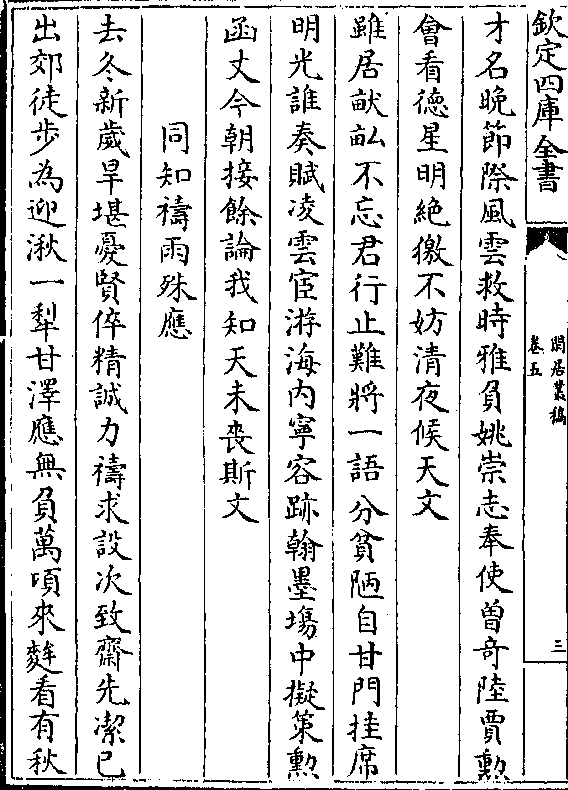 欽定四庫全書
閒居叢稿
卷五
三
才名晚節際風雲救時雅負姚崇志奉使曽竒陸賈勲
會看德星明絶徼不妨清夜候天文
雖居畎畆不忘君行止難將一語分貧陋自甘門挂席
明光誰奏賦凌雲宦游海内寧容跡翰墨塲中擬策勲
函丈今朝接餘論我知天未喪斯文
同知禱雨殊應
去冬新嵗旱堪憂賢倅精誠力禱求設次致齋先潔已
出郊徒步為迎湫一犂甘澤應無負萬頃來麰看有秋